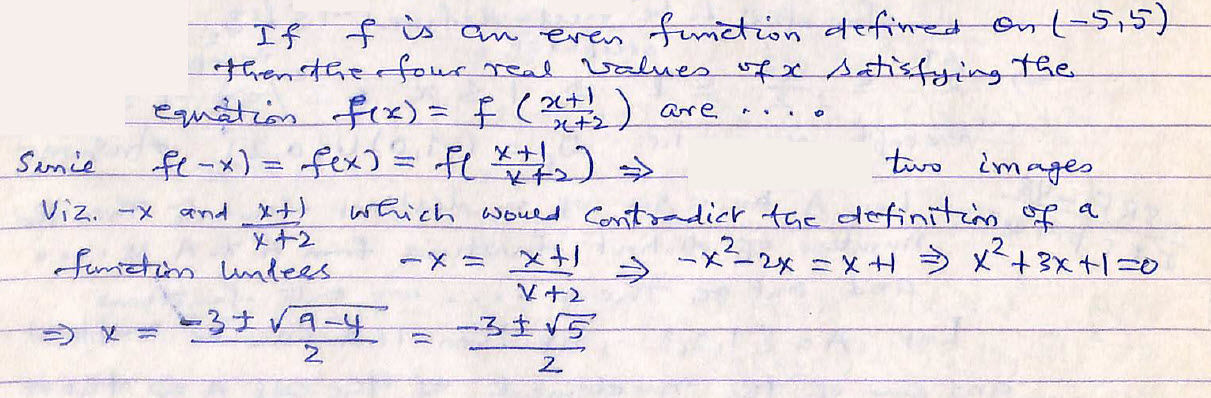 If f is an even function defined on (-5,5)
then the four real values of x satisfying the
equation f(x) = f (x+1/x+2) are ....
Sinie f(-x) = f(x) = f( x+1/x+2 ) ⇒ two images
Viz. -x and x+1/x+2 which would contradict the definition of a
function unless -x = x+1/x+2 ⇒ -x²-2x = x+1 ⇒ x²+3x+1=0
⇒ x = -3±√9-4/2 = -3±√5/2